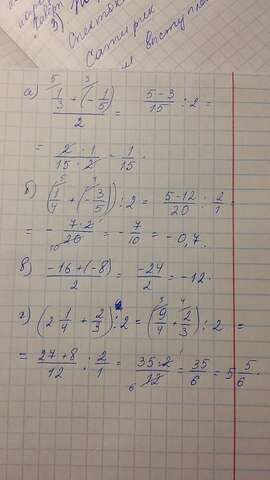 3)
Спектак
Сатирик
выступле
а) (1/3 + (-1/5))/2 = (5-3)/15 : 2 =
= (2 · 1)/(15 · 2) = 1/15.
б) (1/4 + (-3/5)) : 2 = (5-12)/20 : 2/1 =
= - (7 · 2)/20 = - 7/10 = - 0,7.
в) (-16+(-8))/2 = -24/2 = -12.
г) (2 1/4 + 2/3) : 2 = (9/4 + 2/3) : 2 =
= (27+8)/12 : 2/1 = (35 · 2)/12 = 35/6 = 5 5/6.